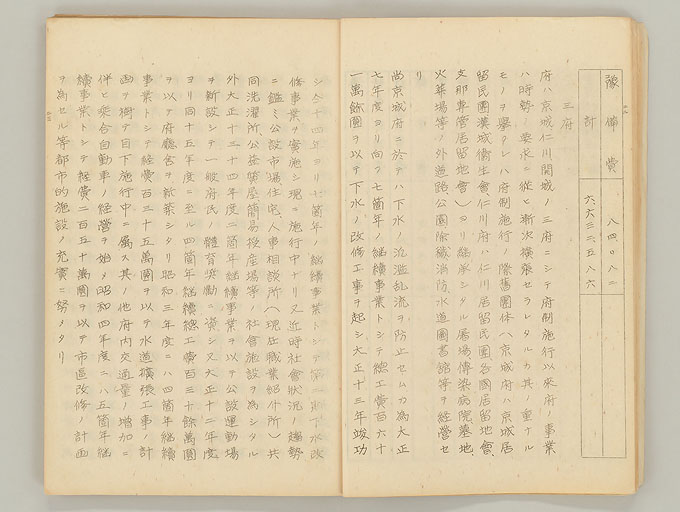 豫備費 八四〇八二
計 六六三三五八六
三府
府ハ京城仁川開城ノ三府ニシテ府制施行以來府ノ事業
ハ時勢ノ要求ニ從ヒ漸次擴張セラレタルカ其ノ重ナル
モノヲ擧クレハ府制施行ノ際舊團体(京城府ハ京城居
留民團漢城衛生會仁川府ハ仁川居留民團各國居留地會、
支那專管居留地會)ヨリ繼承シタル屠場傳染病院墓地
火葬場等ノ外道路公園除穢消防水道圖書館等ヲ經營セ
リ
尚京城府ニ於テハ下水ノ氾濫乱流ヲ防止セムカ為大正
七年度ヨリ向フ七箇年ノ繼續事業トシテ總工費百六十
一萬餘圓ヲ以テ下水ノ改修工事ヲ起シ大正十三年竣功
シ今十四年ヨリ七箇年ノ繼續事業トシテ第二期下水改
修事業ヲ實施シ現ニ施行中ナリ又近時社會狀況ノ趨勢
ニ鑑ミ公設市場住宅、人事相談所(現在職業紹介所)共
同洗濯所公益質屋簡易授産場等ノ社會施設ヲ為シタル
外大正十三十四年度二箇年繼續事業ヲ以テ公設運動場
ヲ新設シテ一般府民ノ體育奬勵ニ資シ又大正十二年度
ヨリ同十五年度ニ至ル四箇年繼續總工費百三十餘萬圓
ヲ以テ府廳舍ヲ新築シタリ昭和三年度ニハ四箇年繼續
事業トシテ經費百三十五萬圓ヲ以テ水道擴張工事ノ計
画ヲ樹テ目下施行中ニ屬ス其ノ他府内交通量ノ增加ニ
伴ヒ乘合自動車ノ經營ヲ始メ昭和四年度ニハ五箇年繼
續事業トシテ經費二百五十萬圓ヲ以テ市區改修ノ計画
ヲ為セル等都市的施設ノ充實ニ努メタリ